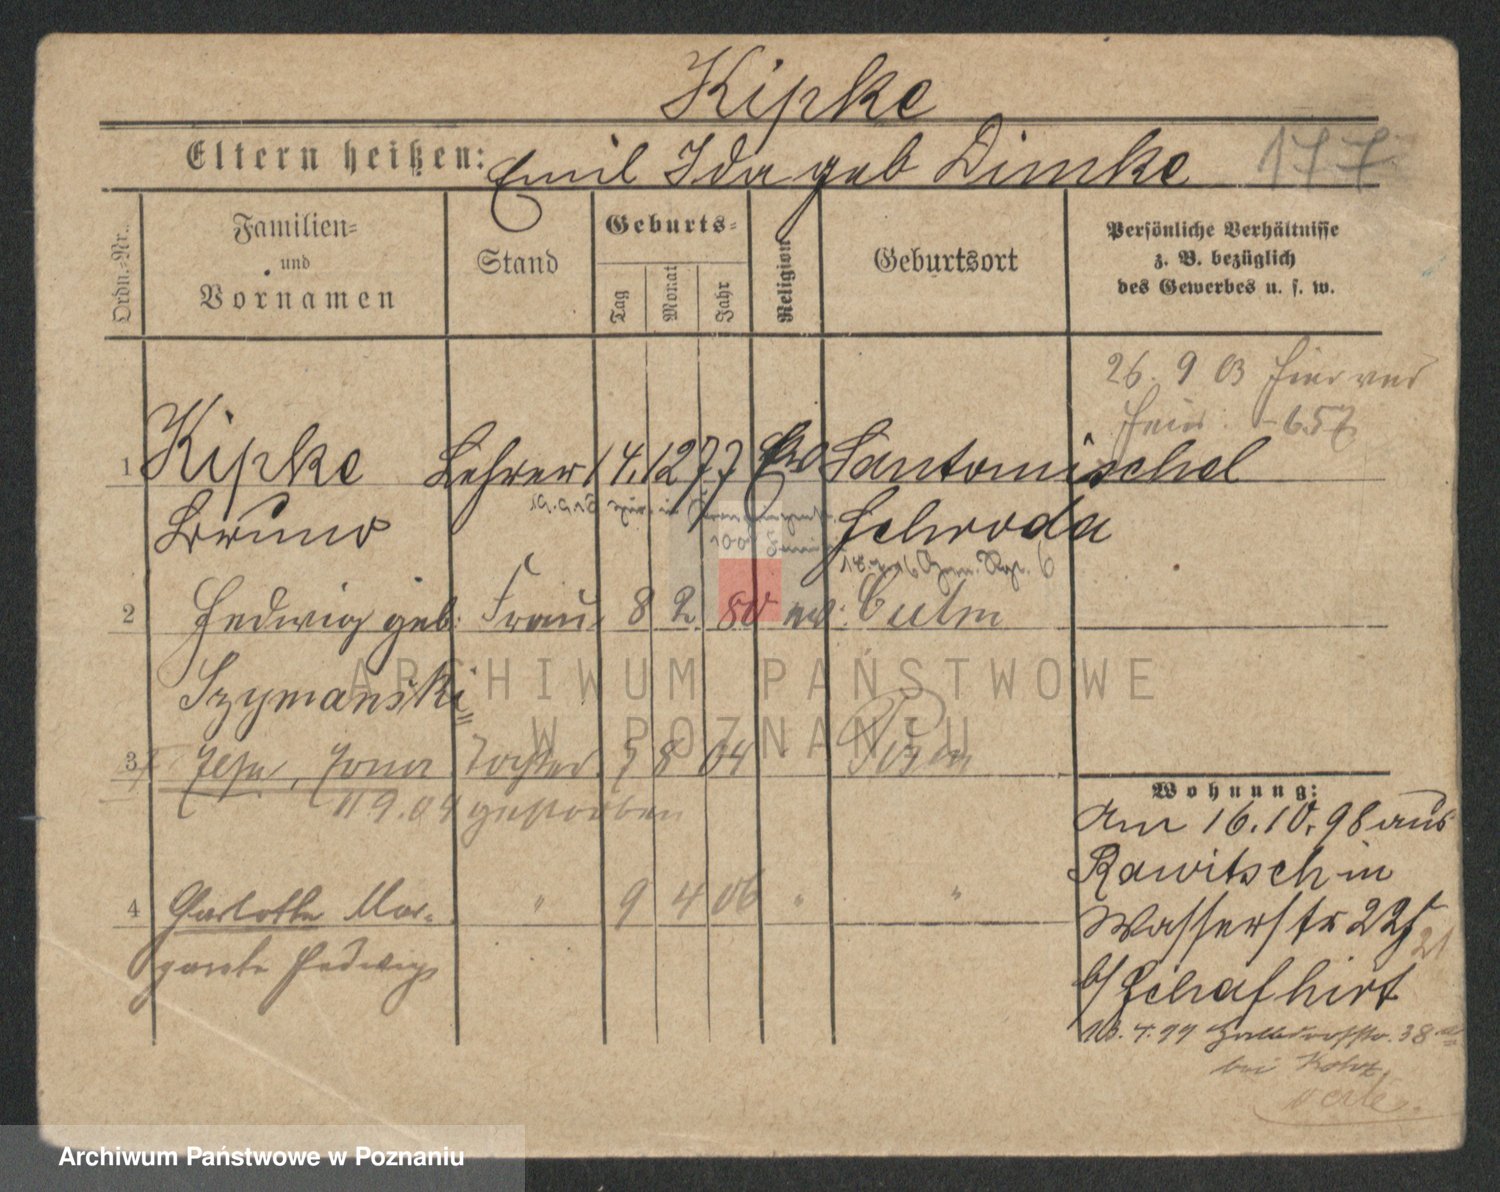 Kipke
Eltern heißen: Emil Ida geb Dimke 177
Ordn.-Nr.
Familien-
und
Vornamen
Stand
Geburts-
Tag
Monat
Jahr
Religion
Geburtsort
Persönliche Verhältnisse
z. B. bezüglich
des Gewerbes u. s. w.
26. 9 03
657
1 Kipke Lehrer 14. 12 77 Santomischel
Bruno Schroda
2 Hedwig geb. Frau 8 2. 80 Culm
Szymanski
ARCHIWUM PAŃSTWOWE
W POZNANIU
3 Ilse, Irma Tochter 5 8 04 Posen
11 9. 04 gestorben
Wohnung:
Am 16. 10. 98 aus
Rawitsch in
Wasserstr 22
21
b/ Schafhirt
4 Charlotte Mar- " 9 4 06 " "
garete Hedwig
4. 99 38
bei
verte.
Archiwum Państwowe w Poznaniu